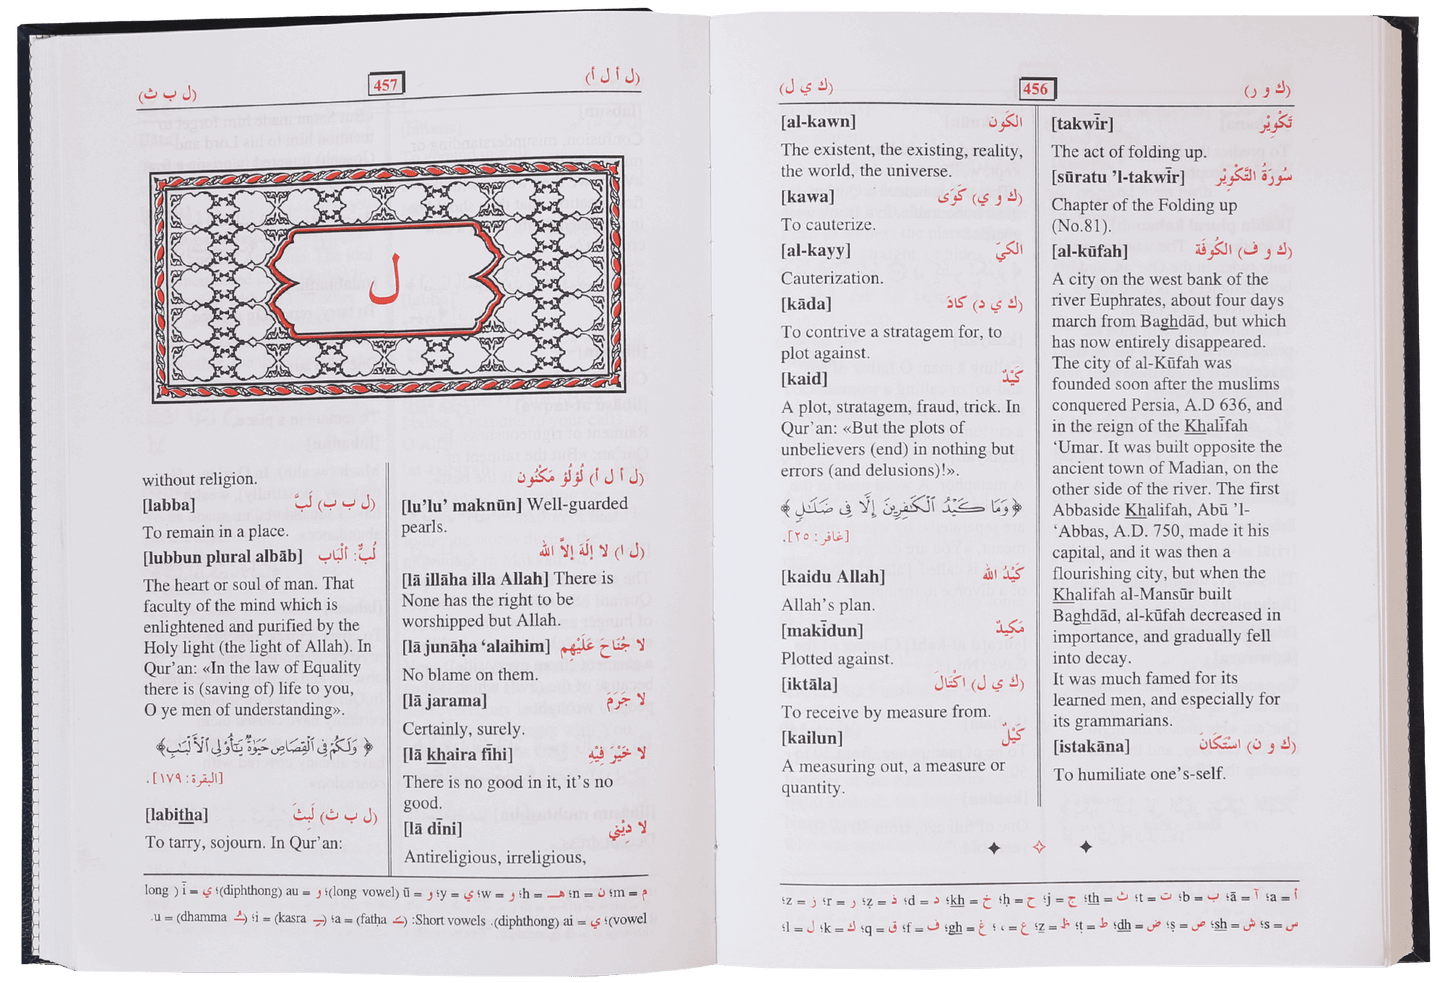 (ك و ر)
456
(ك ي ل)
[takwīr] تَكْوِيْر
The act of folding up.
[sūratu ’l-takwīr] سُورَةُ التَّكْوِيْر
Chapter of the Folding up
(No.81).
[al-kūfah] (ك و ف) الكُوفَة
A city on the west bank of the
river Euphrates, about four days
march from Baghdād, but which
has now entirely disappeared.
The city of al-Kūfah was
founded soon after the muslims
conquered Persia, A.D 636, and
in the reign of the Khalīfah
‘Umar. It was built opposite the
ancient town of Madian, on the
other side of the river. The first
Abbaside Khalifah, Abū ’l-
‘Abbas, A.D. 750, made it his
capital, and it was then a
flourishing city, but when the
Khalifah al-Mansūr built
Baghdād, al-kūfah decreased in
importance, and gradually fell
into decay.
It was much famed for its
learned men, and especially for
its grammarians.
[istakāna] (ك و ن) اسْتَكَانَ
To humiliate one’s-self.
[al-kawn] الكَون
The existent, the existing, reality,
the world, the universe.
[kawa] (ك و ي) كَوَى
To cauterize.
[al-kayy] الكَيّ
Cauterization.
[kāda] (ك ي د) كادَ
To contrive a stratagem for, to
plot against.
[kaid] كَيْدٌ
A plot, stratagem, fraud, trick. In
Qur’an: «But the plots of
unbelievers (end) in nothing but
errors (and delusions)!».
﴿وَمَا كَيْدُ ٱلْكَٰفِرِينَ إِلَّا فِى ضَلَٰلٍ﴾
[غافر: ٢٥].
[kaidu Allah] كَيْدُ الله
Allah’s plan.
[makīdun] مَكِيدٌ
Plotted against.
[iktāla] (ك ي ل) اكْتَالَ
To receive by measure from.
[kailun] كَيْلٌ
A measuring out, a measure or
quantity.
أ = a؛ آ = ā؛ ب = b؛ ت = t؛ ث = th؛ ج = j؛ ح = ḥ؛ خ = kh؛ د = d؛ ذ = ẓ؛ ر = r؛ ز = z؛
س = s؛ ش = sh؛ ص = ṣ؛ ض = dh؛ ط = ṭ؛ ظ = z؛ ع = ‘؛ غ = gh؛ ف = f؛ ق = q؛ ك = k؛ ل = l؛
(ل أ ل أ)
457
(ل ب ث)
ل
(ل أ ل أ) لُؤْلُؤ مَكْنُون
[lu’lu’ maknūn] Well-guarded
pearls.
(ل ا) لا إلَهَ إلاَّ الله
[lā illāha illa Allah] There is
None has the right to be
worshipped but Allah.
[lā junāḥa ‘alaihim] لا جُنَاحَ عَلَيْهِم
No blame on them.
[lā jarama] لا جَرَمَ
Certainly, surely.
[lā khaira fīhi] لا خَيْرَ فِيْهِ
There is no good in it, it’s no
good.
[lā dīni] لا دِيْنِي
Antireligious, irreligious,
without religion.
[labba] (ل ب ب) لَبَّ
To remain in a place.
[lubbun plural albāb] لُبٌّ: ألْبَاب
The heart or soul of man. That
faculty of the mind which is
enlightened and purified by the
Holy light (the light of Allah). In
Qur’an: «In the law of Equality
there is (saving of) life to you,
O ye men of understanding».
﴿وَلَكُمْ فِى ٱلْقِصَاصِ حَيَوٰةٌ يَٰٓأُو۟لِى ٱلْأَلْبَٰبِ﴾
[البقرة: ١٧٩].
[labitha] (ل ب ث) لَبِثَ
To tarry, sojourn. In Qur’an:
م = m؛ ن = n؛ هـ = h؛ و = w؛ ي = y؛ و = ū (long vowel)؛ و = au (diphthong)؛ ي = ī ( long
vowel)؛ ي = ai (diphthong). Short vowels: (fatha ـَ) = a؛ (kasra ـِ) = i؛ (dhamma ـُ) = u.